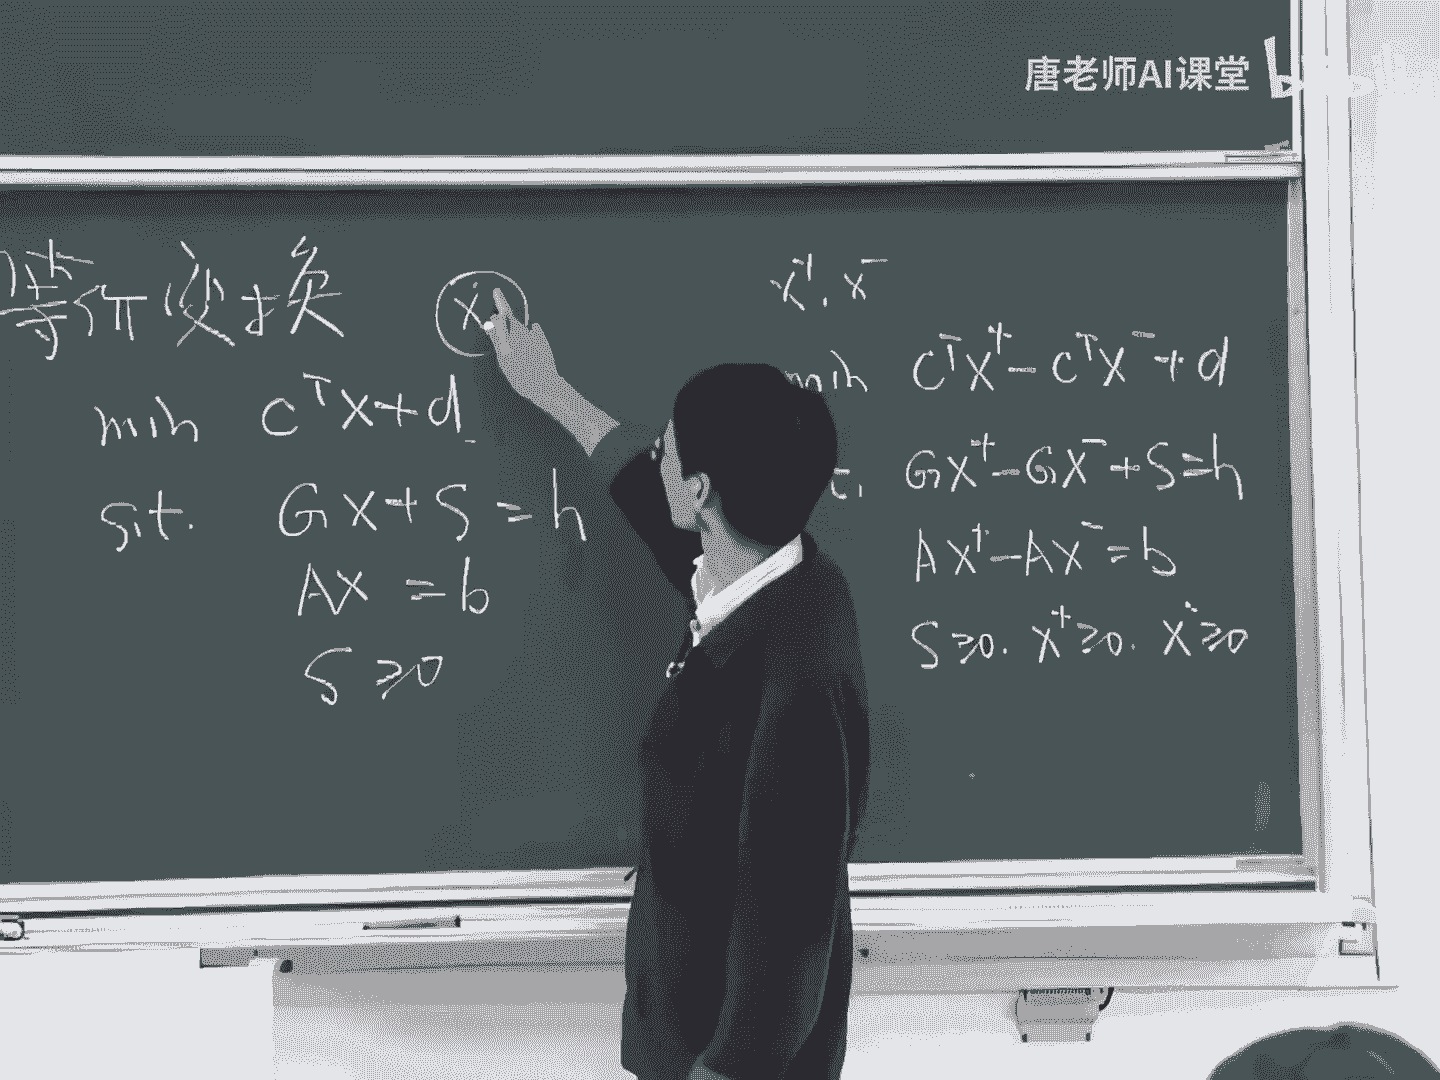 唐老师AI课堂 b
等价变换
x
min cᵀx+d
s.t. Gx+s=h
Ax=b
s≥0
x⁺, x⁻
min cᵀx⁺-cᵀx⁻+d
t. Gx⁺-Gx⁻+s=h
Ax⁺-Ax⁻=b
s≥0. x⁺≥0. x⁻≥0